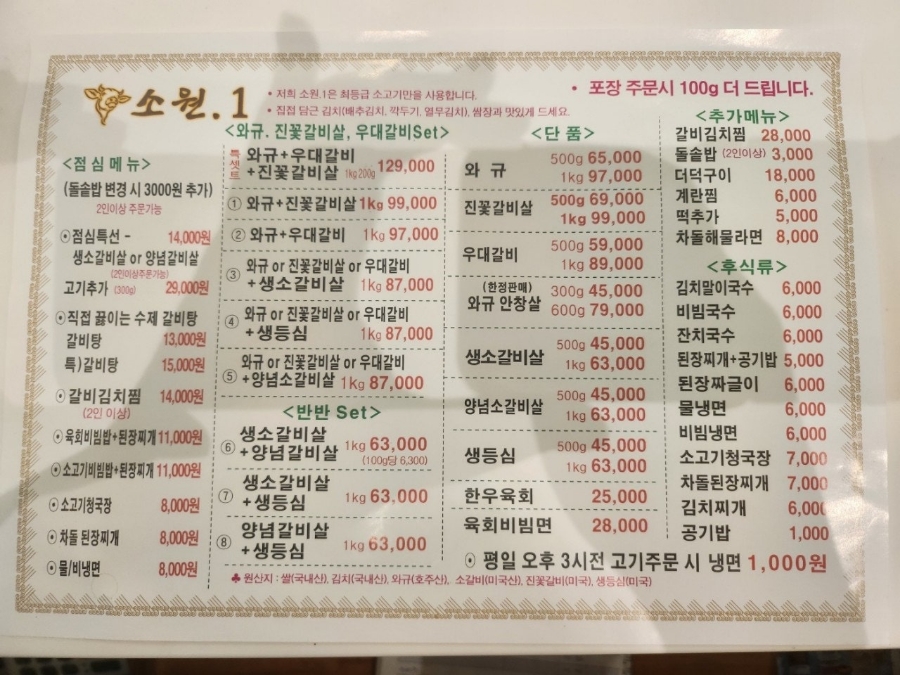 소원.1
• 저희 소원.1은 최등급 소고기만을 사용합니다.
• 직접 담근 김치(배추김치, 깍두기, 열무김치), 쌈장과 맛있게 드세요.
• 포장 주문시 100g 더 드립니다.
<점심메뉴>
(돌솥밥 변경 시 3000원 추가)
2인이상 주문가능
⊙점심특선 - 14,000원
생소갈비살 or 양념갈비살
(2인이상주문가능)
고기추가 (300g) 29,000원
⊙직접 끓이는 수제 갈비탕
갈비탕 13,000원
특)갈비탕 15,000원
⊙갈비김치찜 14,000원
(2인 이상)
⊙육회비빔밥+된장찌개 11,000원
⊙소고기비빔밥+된장찌개 11,000원
⊙소고기청국장 8,000원
⊙차돌 된장찌개 8,000원
⊙물/비냉면 8,000원
<와규, 진꽃갈비살, 우대갈비Set>
특셋트 와규+우대갈비
+진꽃갈비살 1kg 200g 129,000
① 와규+진꽃갈비살 1kg 99,000
② 와규+우대갈비 1kg 97,000
③ 와규 or 진꽃갈비살 or 우대갈비
+생소갈비살 1kg 87,000
④ 와규 or 진꽃갈비살 or 우대갈비
+생등심 1kg 87,000
⑤ 와규 or 진꽃갈비살 or 우대갈비
+양념소갈비살 1kg 87,000
<반반 Set>
⑥ 생소갈비살
+양념갈비살 1kg 63,000
(100g당 6,300)
⑦ 생소갈비살
+생등심 1kg 63,000
⑧ 양념갈비살
+생등심 1kg 63,000
<단품>
와 규 500g 65,000
1kg 97,000
진꽃갈비살 500g 69,000
1kg 99,000
우대갈비 500g 59,000
1kg 89,000
(한정판매)
와규 안창살 300g 45,000
600g 79,000
생소갈비살 500g 45,000
1kg 63,000
양념소갈비살 500g 45,000
1kg 63,000
생등심 500g 45,000
1kg 63,000
한우육회 25,000
육회비빔면 28,000
<추가메뉴>
갈비김치찜 28,000
돌솥밥 (2인이상) 3,000
더덕구이 18,000
계란찜 6,000
떡추가 5,000
차돌해물라면 8,000
<후식류>
김치말이국수 6,000
비빔국수 6,000
잔치국수 6,000
된장찌개+공기밥 5,000
된장짜글이 6,000
물냉면 6,000
비빔냉면 6,000
소고기청국장 7,000
차돌된장찌개 7,000
김치찌개 6,000
공기밥 1,000
⊙ 평일 오후 3시전 고기주문 시 냉면 1,000원
♣ 원산지 : 쌀(국내산), 김치(국내산), 와규(호주산), 소갈비(미국산), 진꽃갈비(미국), 생등심(미국)